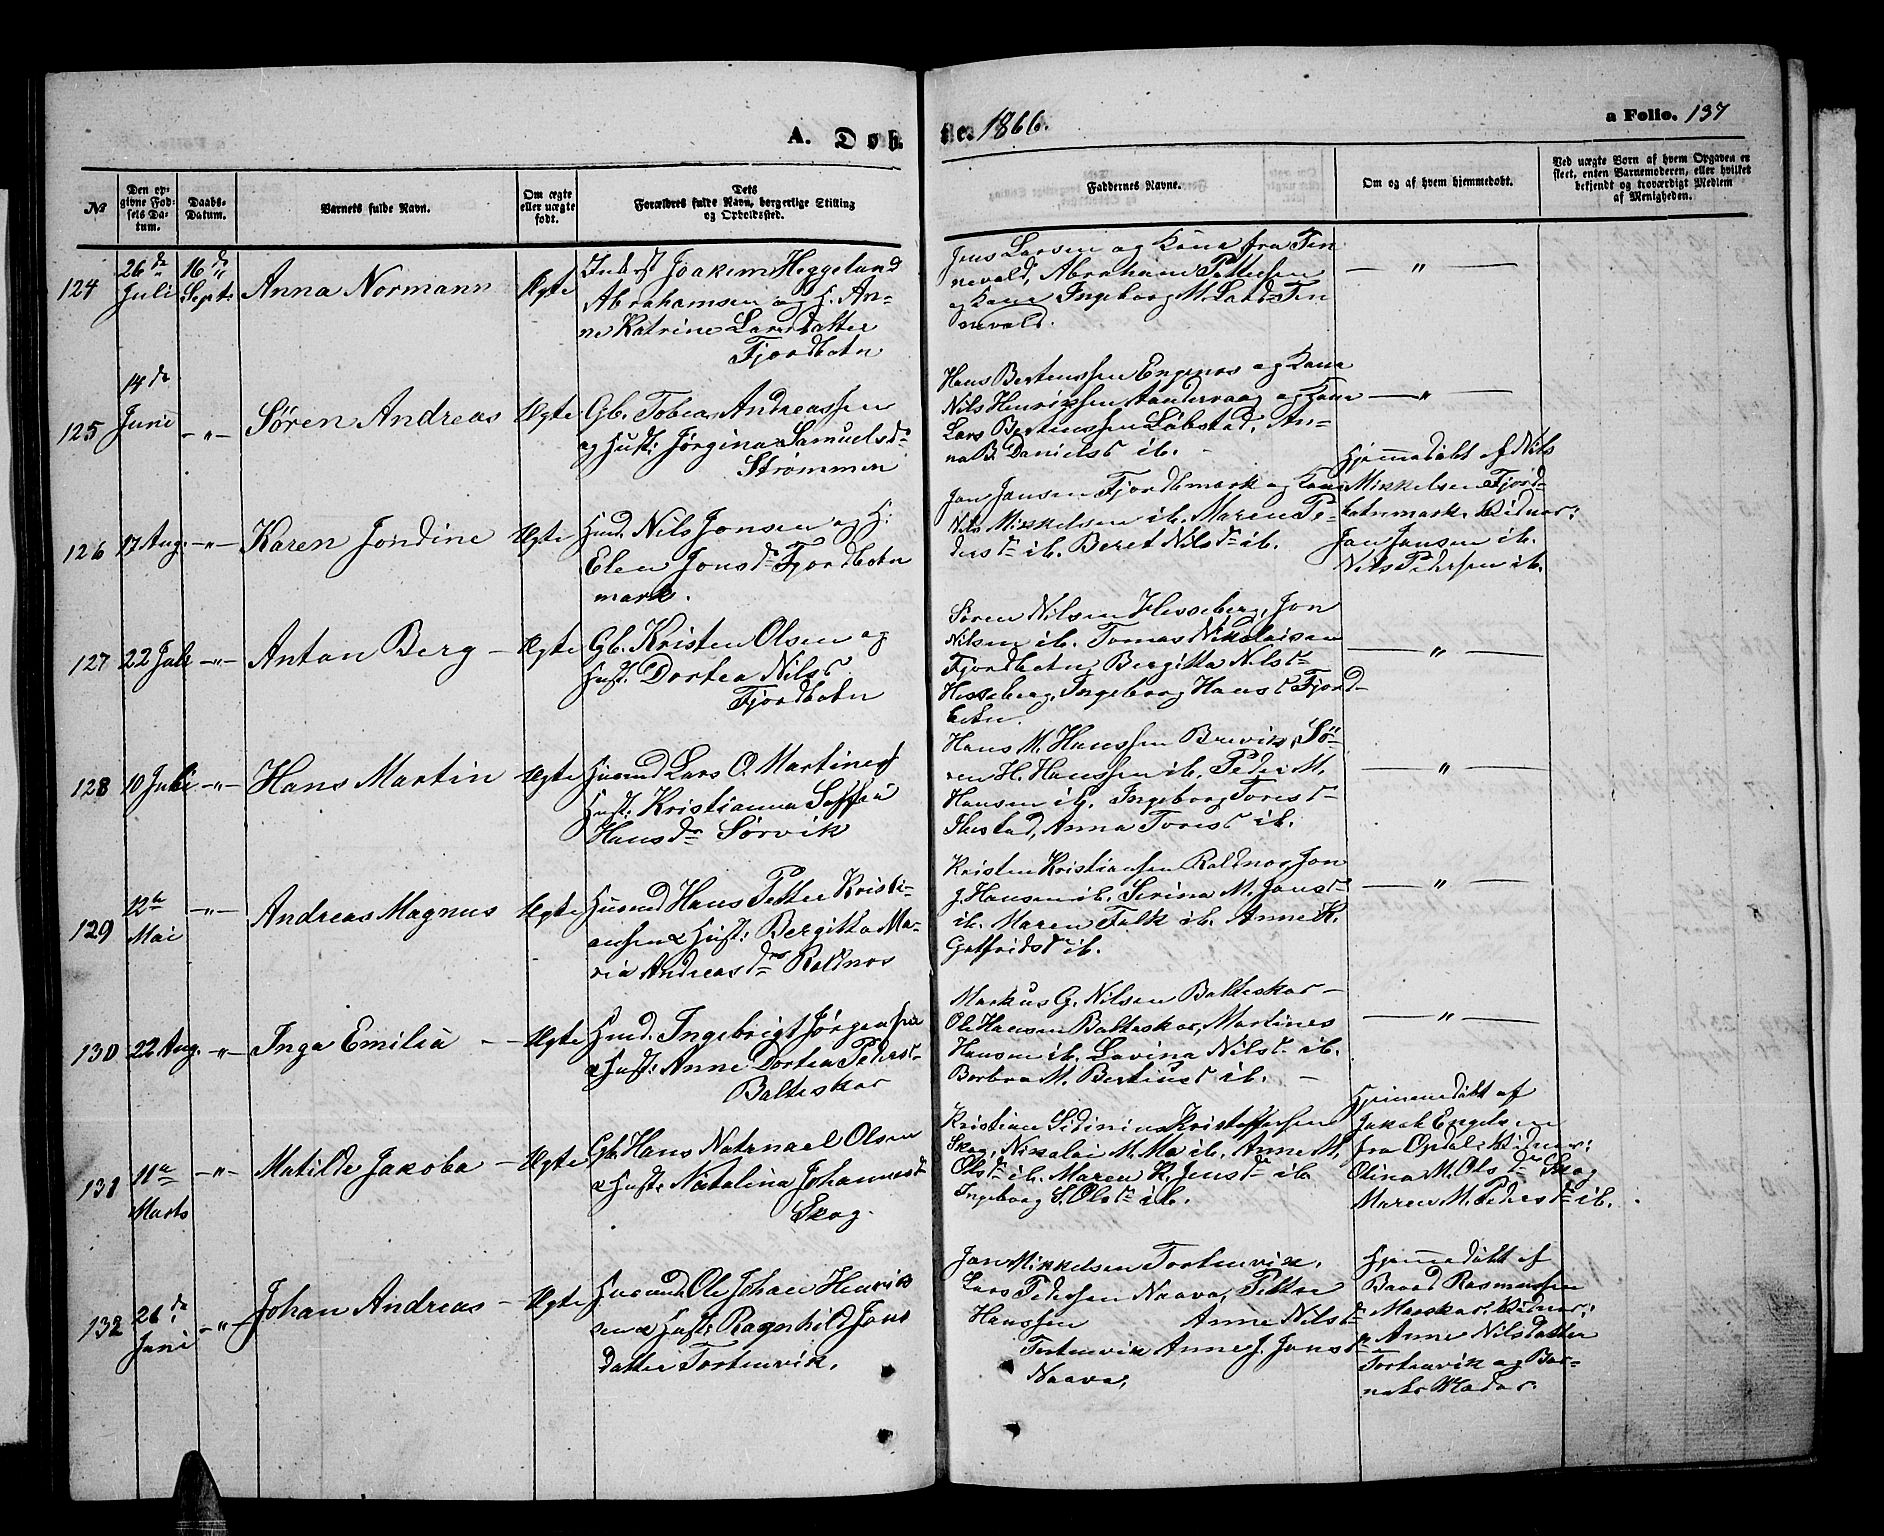 A. Døb
te. 1866.
a Folio. 137
No
Den opgivne Fødsels Datum.
Daabs-Datum.
Barnets fulde Navn.
Om ægte eller uægte født.
Dets Forældres fulde Navn, borgerlige Stilling og Opholdssted.
Faddernes Navne.
Om og af hvem hjemmedøbt.
Ved uægte Børn af hvem Opgaven er skeet, enten Barnemoderen, eller hvilket bekjendt og troværdigt Medlem af Menigheden.
124
26de Juli
16de Septr
Anna Normann
Ægte
Inderst Joakim Heggelund
Abrahamsen og H. An-
ne Katrine Larsdatter
Fjordbotn
Jens Larsen og Kone fra Ten
nevold, Abraham Pettersen
og Kone Ingeborg M. Larsd Ten
nevold.
— " —
125
14de Juni
- " -
Søren Andreas
Ægte
Gb. Tobias Andreassen
og Hust: Jørgina Samuelsdr
Strømmen
Hans Bertenssen Engenes og Kone
Nils Henrikssen Aandervaag og Kone
Lars Bertenssen Løbstad, An-
na B. Danielsd ib.
— " —
126
17 Aug.
- " -
Karen Jondine
Ægte
Husd. Nils Jonsen og H:
Elen Jonsdr Fjordbotn
mark.
Jon Jonsen Fjordbmark og Kone
Nils Mikkelsen ib. Maren Pe-
dersdr ib. Beret Nilsdr ib.
Hjemmedøbt af Nils
Mikkelsen Fjord-
botnmark. Vidner:
Jon Jonsen ib.
Nils Pedersen ib.
127
22 Juli
- " -
Anton Berg
Ægte
Gb. Kristen Olsen og
Hust. Dortea Nilsd
Fjordbotn
Søren Nilsen Hesseberg, Jon
Nilsen ib. Tomas Nikolaisen
Fjordbotn, Bergitta Nilsd
Hesseberg, Ingeborg Hansd Fjord-
botn.
— " —
128
10 Juli
- " -
Hans Martin
Ægte
Husmd Lars O. Martines
Hust: Kristianna Soffia
Hansdr Sørvik
Hans M. Hanssen Brevik, Sø-
ren H. Hanssen ib. Peder M.
Hansen ib. Ingeborg Toresd
Flustad, Anna Toresd ib.
— " —
129
12te Mai
- " -
Andreas Magnus
Ægte
Husmd Hans Petter Kristi-
ansen & Hust: Bergitta Ma-
ria Andreasdr Roldnes
Kristen Kristiansen Roldnes, Jon
J. Hansen ib. Serina M. Jonsd
ib. Maren Falk ib. Anne K.
Gotfridsd ib.
— " —
130
22 Aug.
- " -
Inga Emilia
Ægte
Husd. Ingebrigt Jørgensen
& Hust: Anne Dortea Pedersd
Balteskar
Markus G. Nilsen Balteskar
Ole Hansen Balteskar, Martines
Hansen ib. Lovina Nilsd ib.
Borbra M. Bertinesd ib.
— " —
131
11te Marts
- " -
Matilde Jakoba
Ægte
Gb. Hans Natanael Olsen
& Hust: Natalina Johannesd
Skog.
Kristian Sidinius Kristoffersen
Skog, Nikolai M. Mo ib. Anne M.
Olsdr ib. Maren K. Jensdr ib.
Ingeborg S. Olsdr ib.
Hjemmedøbt af
Jakob Engelsen
fra Opdal. Vidner:
Olina M. Olsdr Skog
Maren M. Pedersdr ib.
132
26de Juni
- " -
Johan Andreas
Ægte
Husmd Ole Johan Henrik
sen & Hust: Ragnhild Jons
datter Tortenvik.
Jon Mikkelsen Tortenvik,
Lars Pedersen Naava, Petter
Hanssen Anne Nilsd
Tortenvik Anne J. Jonsd
Naava,
Hjemmedøbt af
Baard Rasmussen
Maaskar, Vidner:
Anne Nilsdatter
Tortenvik og Bar-
nets Moder.